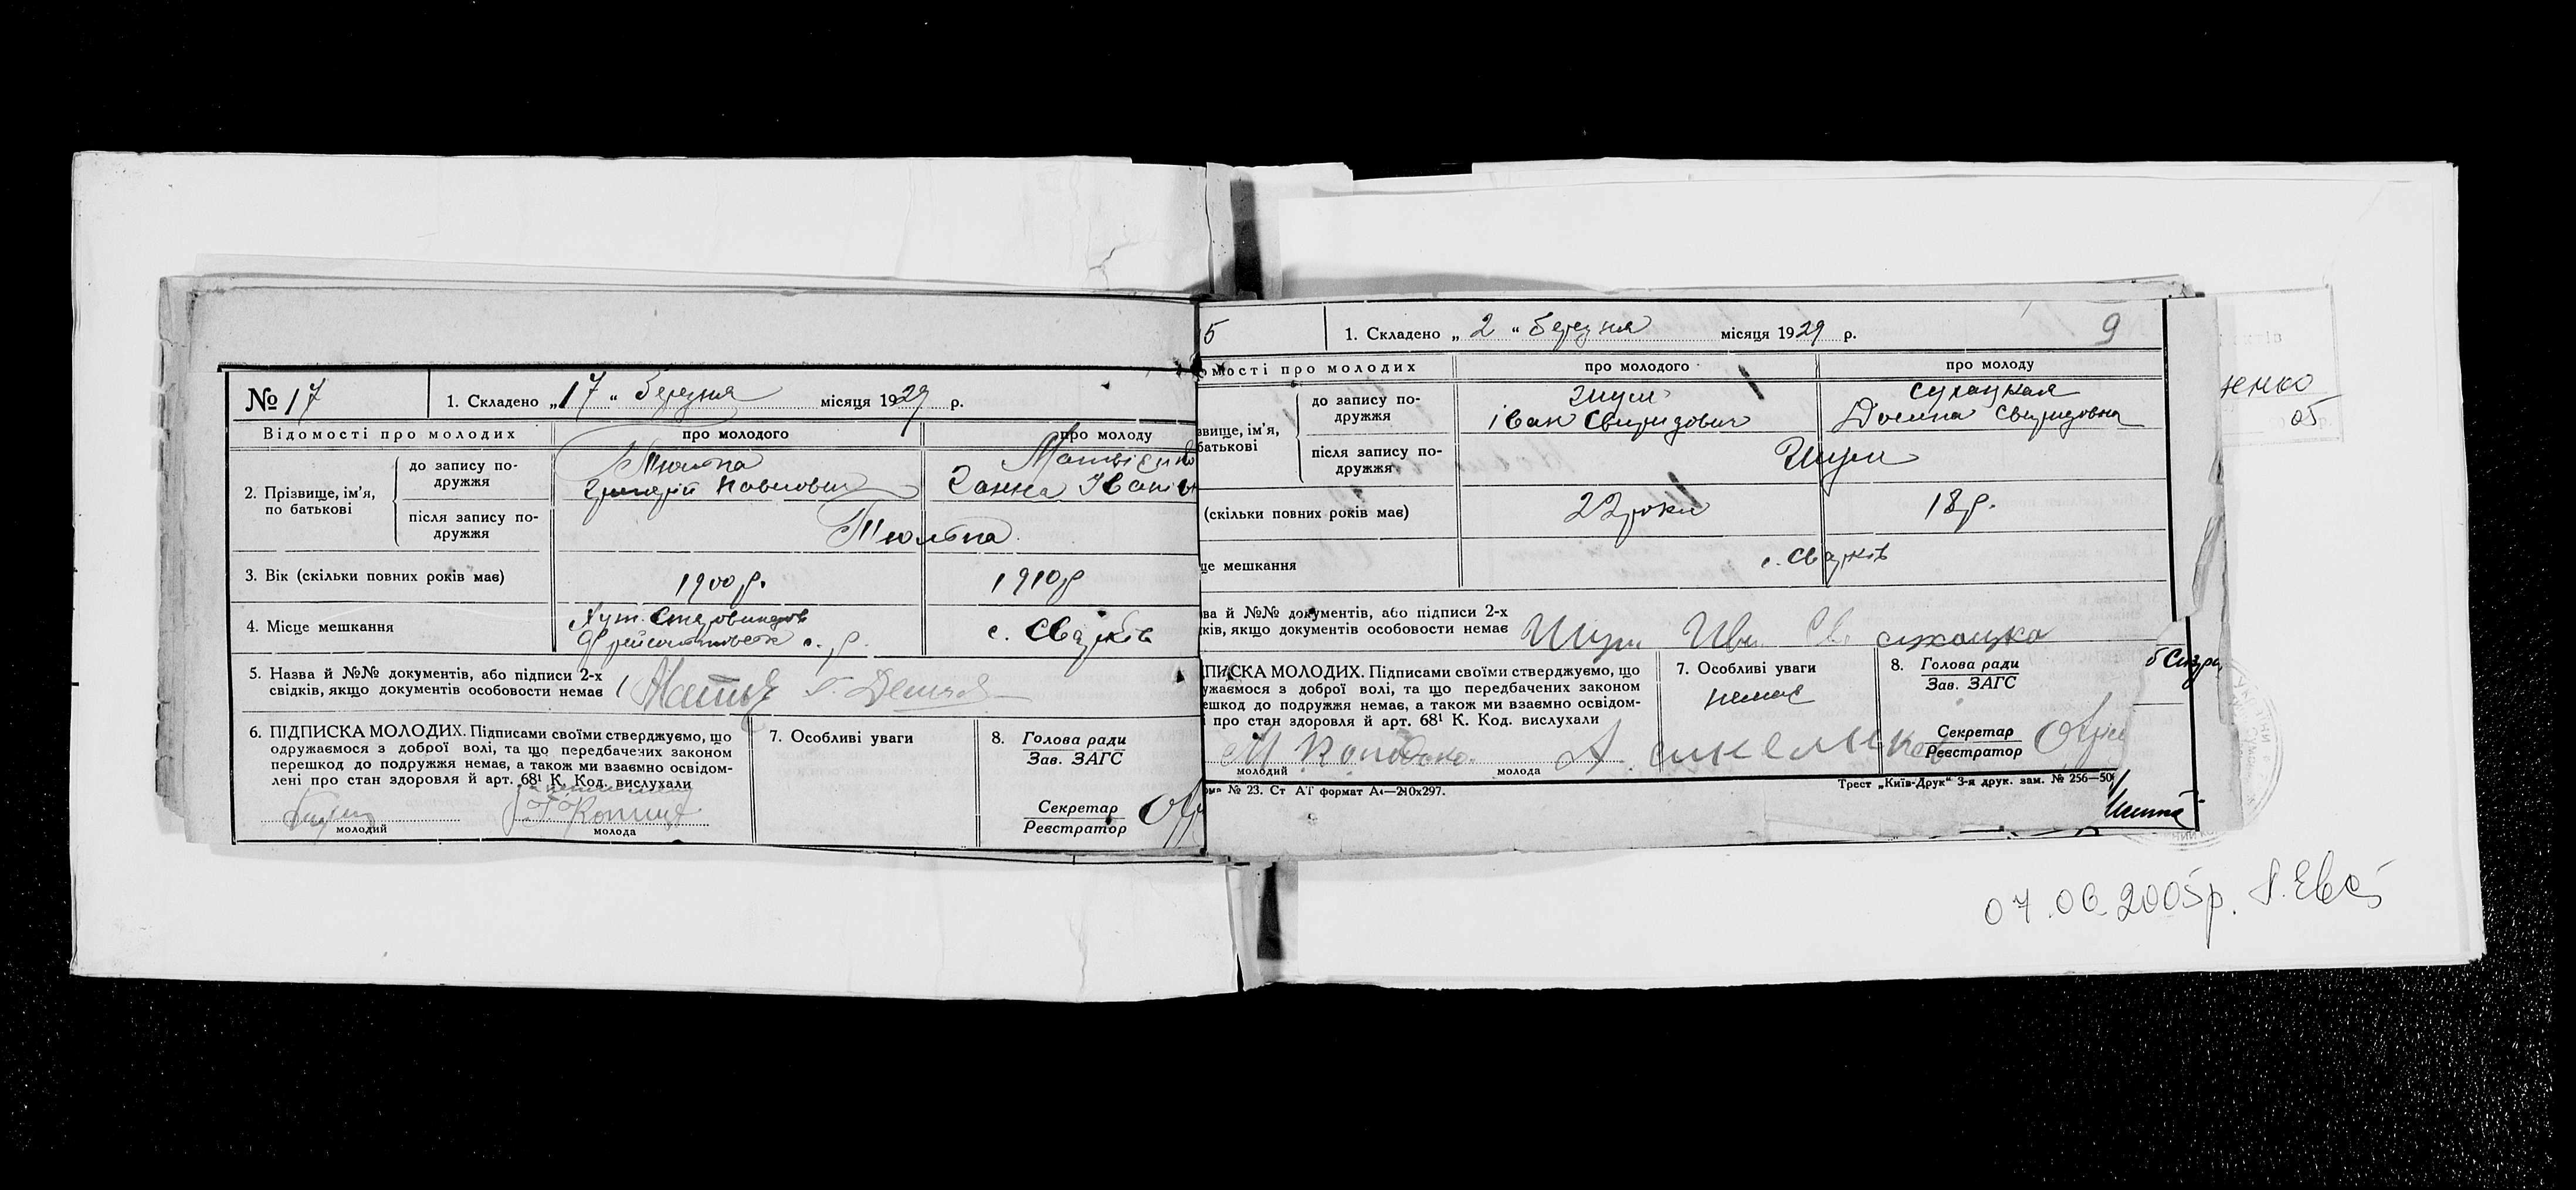 № 17
1. Складено „17“ березня місяця 1929 р.
Відомості про молодих
про молодого
про молоду
2. Прізвище, ім'я,
по батькові
до запису по-
дружжя
Тюльпа
Григорій Павлович
Матвієнко
Ганна Іванівн
після запису по-
дружжя
Тюльпа
3. Вік (скільки повних років має)
1900 р.
1910 р
4. Місце мешкання
Хут.
с. р.
с. Свидків
5. Назва й №№ документів, або підписи 2-х
свідків, якщо документів особовости немає
6. ПІДПИСКА МОЛОДИХ. Підписами своїми стверджуємо, що
одружаємося з доброї волі, та що передбачених законом
перешкод до подружжя немає, а також ми взаємно освідом-
лені про стан здоровля й арт. 68¹ К. Код. вислухали
молодий
молода
7. Особливі уваги
8. Голова ради
Зав. ЗАГС
Секретар
Реєстратор
5
1. Складено „2“ березня місяця 1929 р.
9
омості про молодих
про молодого
про молоду
звище, ім'я,
батькові
до запису по-
дружжя
Шум
Іван Свиридович
Сухацкая
Свиридовна
після запису по-
дружжя
Шум
(скільки повних років має)
22 роки
18 р.
це мешкання
с. Свидків
ва й №№ документів, або підписи 2-х
ків, якщо документів особовости немає
Шум Ив. Св. сухацка
ПИСКА МОЛОДИХ. Підписами своїми стверджуємо, що
ужаємося з доброї волі, та що передбачених законом
ешкод до подружжя немає, а також ми взаємно освідом-
про стан здоровля й арт. 68¹ К. Код. вислухали
молодий
молода
7. Особливі уваги
немає
8. Голова ради
Зав. ЗАГС
Секретар
Реєстратор
№ 23. Ст АТ формат А4—210х297.
Трест „Київ-Друк“ 3-я друк. зам. № 256—50
енко
05
07.06.2005р.